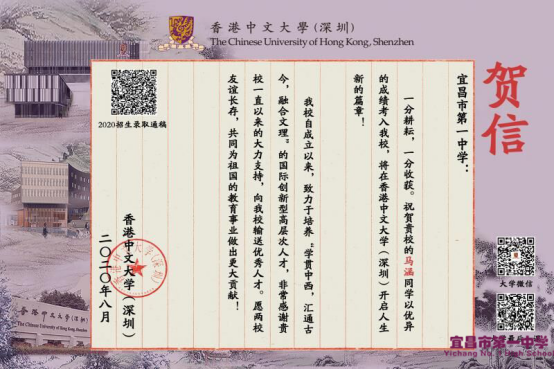 香港中文大學(深圳)
The Chinese University of Hong Kong, Shenzhen
贺信
宜昌市第一中学：
一分耕耘，一分收获。祝贺贵校的马涵同学以优异
的成绩考入我校，将在香港中文大学（深圳）开启人生
新的篇章！
我校自成立以来，致力于培养“学贯中西，汇通古
今，融合文理”的国际创新型高层次人才，非常感谢贵
校一直以来的大力支持，向我校输送优秀人才。愿两校
友谊长存，共同为祖国的教育事业做出更大贡献！
香港中文大学（深圳）
二〇二〇年八月
2020招生录取通稿
大学微信
香港中文大學(深圳)
The Chinese University of Hong Kong, Shenzhen
宜昌市第一中学
Yichang No.1 High School